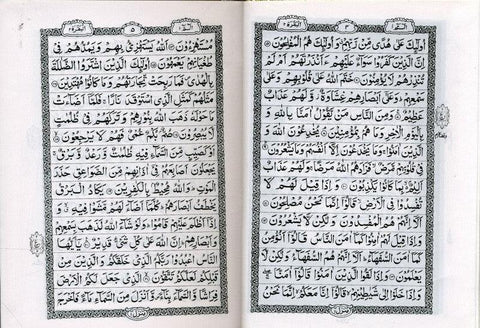 البقرة ٢
٣
الٓمّٓ ١
اُولٰٓئِكَ عَلٰى هُدًى مِّنْ رَّبِّهِمْ وَاُولٰٓئِكَ هُمُ الْمُفْلِحُوْنَ
اِنَّ الَّذِيْنَ كَفَرُوْا سَوَآءٌ عَلَيْهِمْ ءَاَنْذَرْتَهُمْ اَمْ لَمْ
تُنْذِرْهُمْ لَا يُؤْمِنُوْنَ خَتَمَ اللّٰهُ عَلٰى قُلُوْبِهِمْ وَعَلٰى
سَمْعِهِمْ وَعَلٰٓى اَبْصَارِهِمْ غِشَاوَةٌ وَّلَهُمْ عَذَابٌ
عَظِيْمٌ وَمِنَ النَّاسِ مَنْ يَّقُوْلُ اٰمَنَّا بِاللّٰهِ وَ
بِالْيَوْمِ الْاٰخِرِ وَمَا هُمْ بِمُؤْمِنِيْنَ يُخٰدِعُوْنَ اللّٰهَ وَ
الَّذِيْنَ اٰمَنُوْا وَمَا يَخْدَعُوْنَ اِلَّآ اَنْفُسَهُمْ وَمَا يَشْعُرُوْنَ
فِيْ قُلُوْبِهِمْ مَّرَضٌ فَزَادَهُمُ اللّٰهُ مَرَضًا وَلَهُمْ عَذَابٌ
اَلِيْمٌ بِمَا كَانُوْا يَكْذِبُوْنَ وَاِذَا قِيْلَ لَهُمْ لَا
تُفْسِدُوْا فِي الْاَرْضِ قَالُوْٓا اِنَّمَا نَحْنُ مُصْلِحُوْنَ
اَلَآ اِنَّهُمْ هُمُ الْمُفْسِدُوْنَ وَلٰكِنْ لَّا يَشْعُرُوْنَ
وَاِذَا قِيْلَ لَهُمْ اٰمِنُوْا كَمَآ اٰمَنَ النَّاسُ قَالُوْٓا اَنُؤْمِنُ
كَمَآ اٰمَنَ السُّفَهَآءُ اَلَآ اِنَّهُمْ هُمُ السُّفَهَآءُ وَلٰكِنْ لَّا
يَعْلَمُوْنَ وَاِذَا لَقُوا الَّذِيْنَ اٰمَنُوْا قَالُوْٓا اٰمَنَّا
وَاِذَا خَلَوْا اِلٰى شَيٰطِيْنِهِمْ قَالُوْٓا اِنَّا مَعَكُمْ اِنَّمَا نَحْنُ
البقرة ٢
٥
مُسْتَهْزِءُوْنَ اَللّٰهُ يَسْتَهْزِئُ بِهِمْ وَيَمُدُّهُمْ فِيْ
طُغْيَانِهِمْ يَعْمَهُوْنَ اُولٰٓئِكَ الَّذِيْنَ اشْتَرَوُا الضَّلٰلَةَ
بِالْهُدٰى فَمَا رَبِحَتْ تِّجَارَتُهُمْ وَمَا كَانُوْا مُهْتَدِيْنَ
مَثَلُهُمْ كَمَثَلِ الَّذِي اسْتَوْقَدَ نَارًا فَلَمَّآ اَضَآءَتْ
مَا حَوْلَهٗ ذَهَبَ اللّٰهُ بِنُوْرِهِمْ وَتَرَكَهُمْ فِيْ ظُلُمٰتٍ
لَّا يُبْصِرُوْنَ صُمٌّۢ بُكْمٌ عُمْيٌ فَهُمْ لَا يَرْجِعُوْنَ
اَوْ كَصَيِّبٍ مِّنَ السَّمَآءِ فِيْهِ ظُلُمٰتٌ وَّرَعْدٌ وَّبَرْقٌ
يَجْعَلُوْنَ اَصَابِعَهُمْ فِيْٓ اٰذَانِهِمْ مِّنَ الصَّوَاعِقِ حَذَرَ
الْمَوْتِ وَاللّٰهُ مُحِيْطٌۢ بِالْكٰفِرِيْنَ يَكَادُ الْبَرْقُ
يَخْطَفُ اَبْصَارَهُمْ كُلَّمَآ اَضَآءَ لَهُمْ مَّشَوْا فِيْهِ
وَاِذَآ اَظْلَمَ عَلَيْهِمْ قَامُوْا وَلَوْ شَآءَ اللّٰهُ لَذَهَبَ بِسَمْعِهِمْ
وَاَبْصَارِهِمْ اِنَّ اللّٰهَ عَلٰى كُلِّ شَيْءٍ قَدِيْرٌ يٰٓاَيُّهَا
النَّاسُ اعْبُدُوْا رَبَّكُمُ الَّذِيْ خَلَقَكُمْ وَالَّذِيْنَ مِنْ
قَبْلِكُمْ لَعَلَّكُمْ تَتَّقُوْنَ الَّذِيْ جَعَلَ لَكُمُ الْاَرْضَ
فِرَاشًا وَّالسَّمَآءَ بِنَآءً وَّاَنْزَلَ مِنَ السَّمَآءِ مَآءً فَاَخْرَجَ